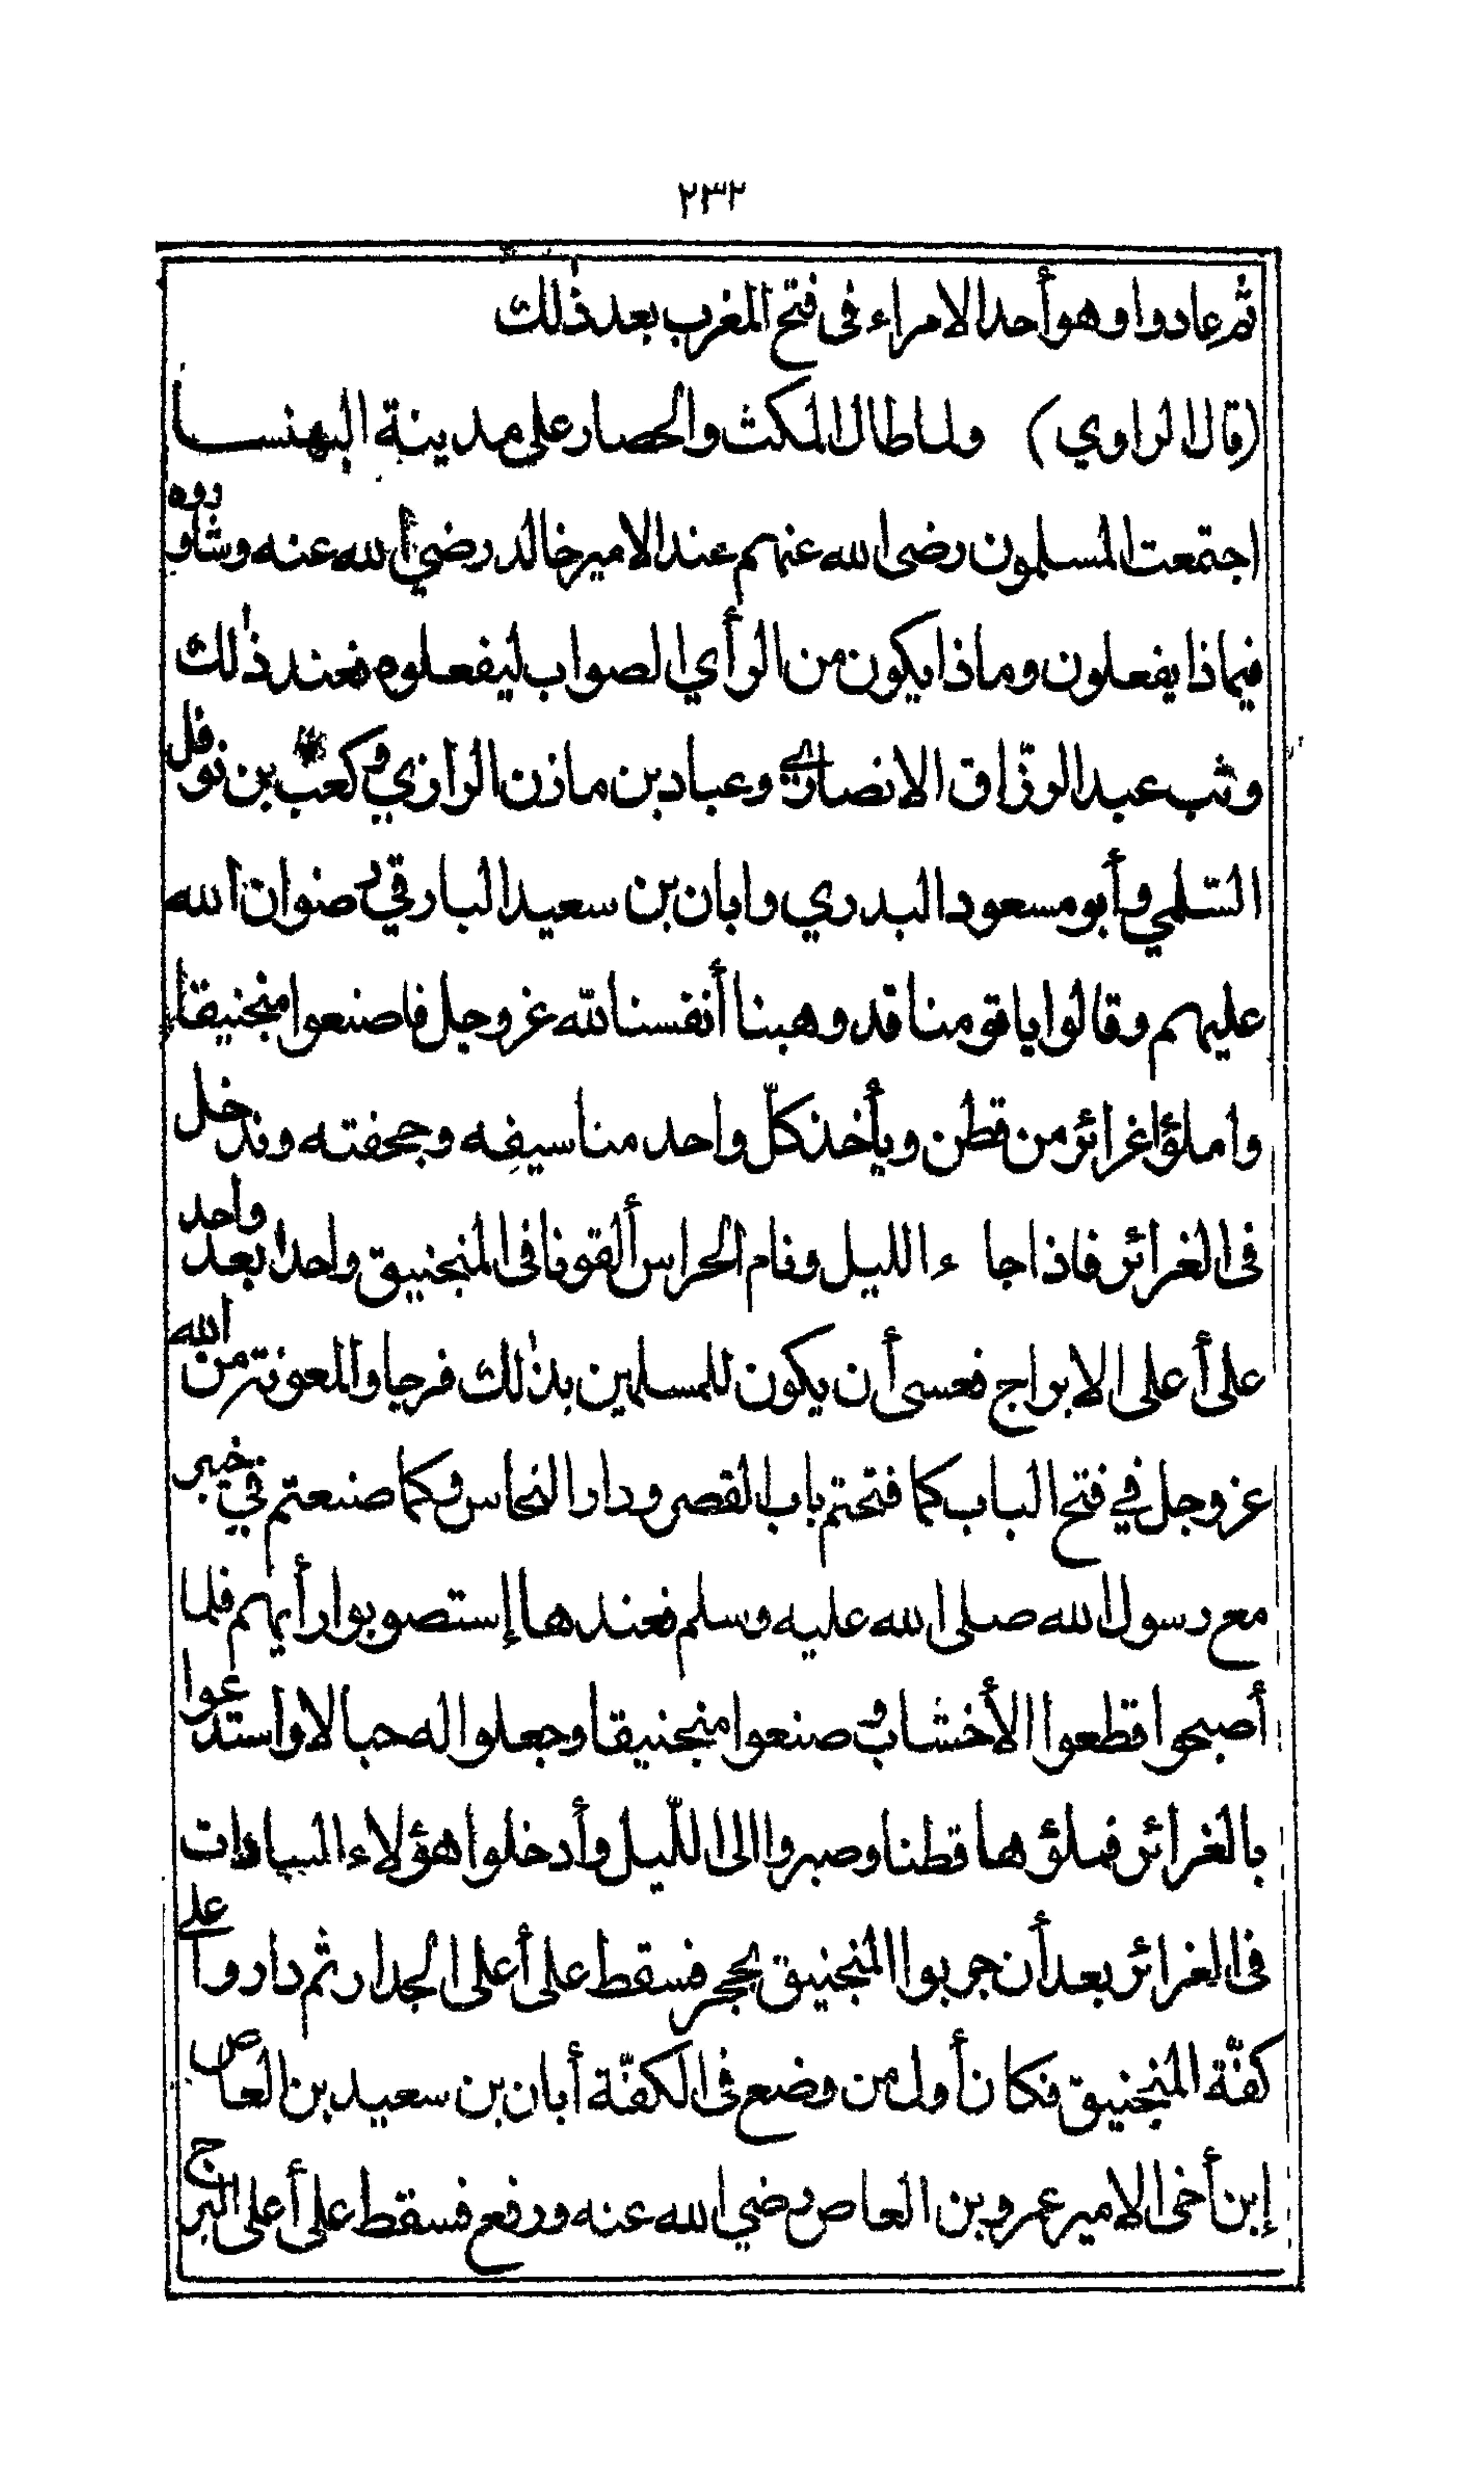 ٢٣٢
ثم عادوا وهو أحد الامراء فى فتح المغرب بعد ذٰلك
(قال الراوي) ولما طال المكث والحصار على مدينة البهنسا
اجتمعت المسلمون رضى الله عنهم عند الامير خالد رضي الله عنه وشاوروه
فيما ذا يفعلون وماذا يكون من الرأي الصواب ليفعلوه فعند ذٰلك
وثب عبد الرزّاق الانصاري وعباد بن مازن الرازي وكعب بن نوفل
السّلمي وأبو مسعود البدري وابان بن سعيد البارقي رضوان الله
عليهم وقالوا يا قومنا قد وهبنا أنفسنا لله عز وجل فاصنعوا منجنيقا
واملؤا غرائر من قطن ويأخذ كلّ واحد منا سيفه وجحفته وندخل
فى الغرائر فاذا جاء الليل ونام الحراس ألقونا فى المنجنيق واحدا بعد واحد
على أعلى الابراج فعسى أن يكون للمسلمين بذٰلك فرجا والمعونة من الله
عز وجل في فتح الباب كما فتحتم باب القصر ودار النحاس وكما صنعتم في خيبر
مع رسول الله صلى الله عليه وسلم فعندها إستصوبوا رأيهم فلما
أصبحوا قطعوا الأخشاب وصنعوا منجنيقا وجعلوا له حبالا واستدعوا
بالغرائر فملؤها قطنا وصبروا الى اللّيل وأدخلوا هؤلاء السادات
فى الغرائر بعد أن جربوا المنجنيق بحجر فسقط على أعلى الجدار ثم داروا على
كفّة المنجنيق فكان أول من وضع فى الكفّة أبان بن سعيد بن العاص
إبن أخى الامير عمرو بن العاص رضي الله عنه ورفع فسقط على أعلى البرج